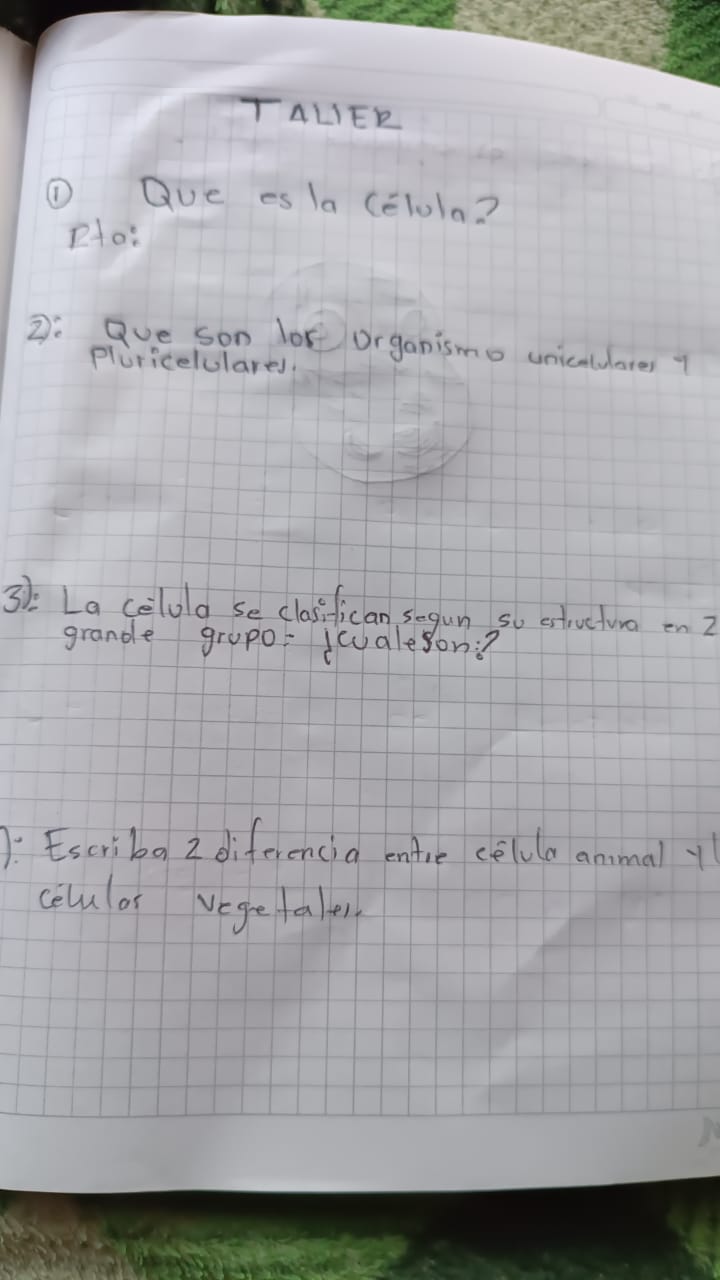 TALLER
① Que es la célula?
Rta:
2): Que son los organismo unicelulares y
Pluricelulares.
3): La célula se clasifican segun su estructura en 2
grande grupo= ¿cualeson:?
): Escriba 2 diferencia entre célula animal y
células vegetales.